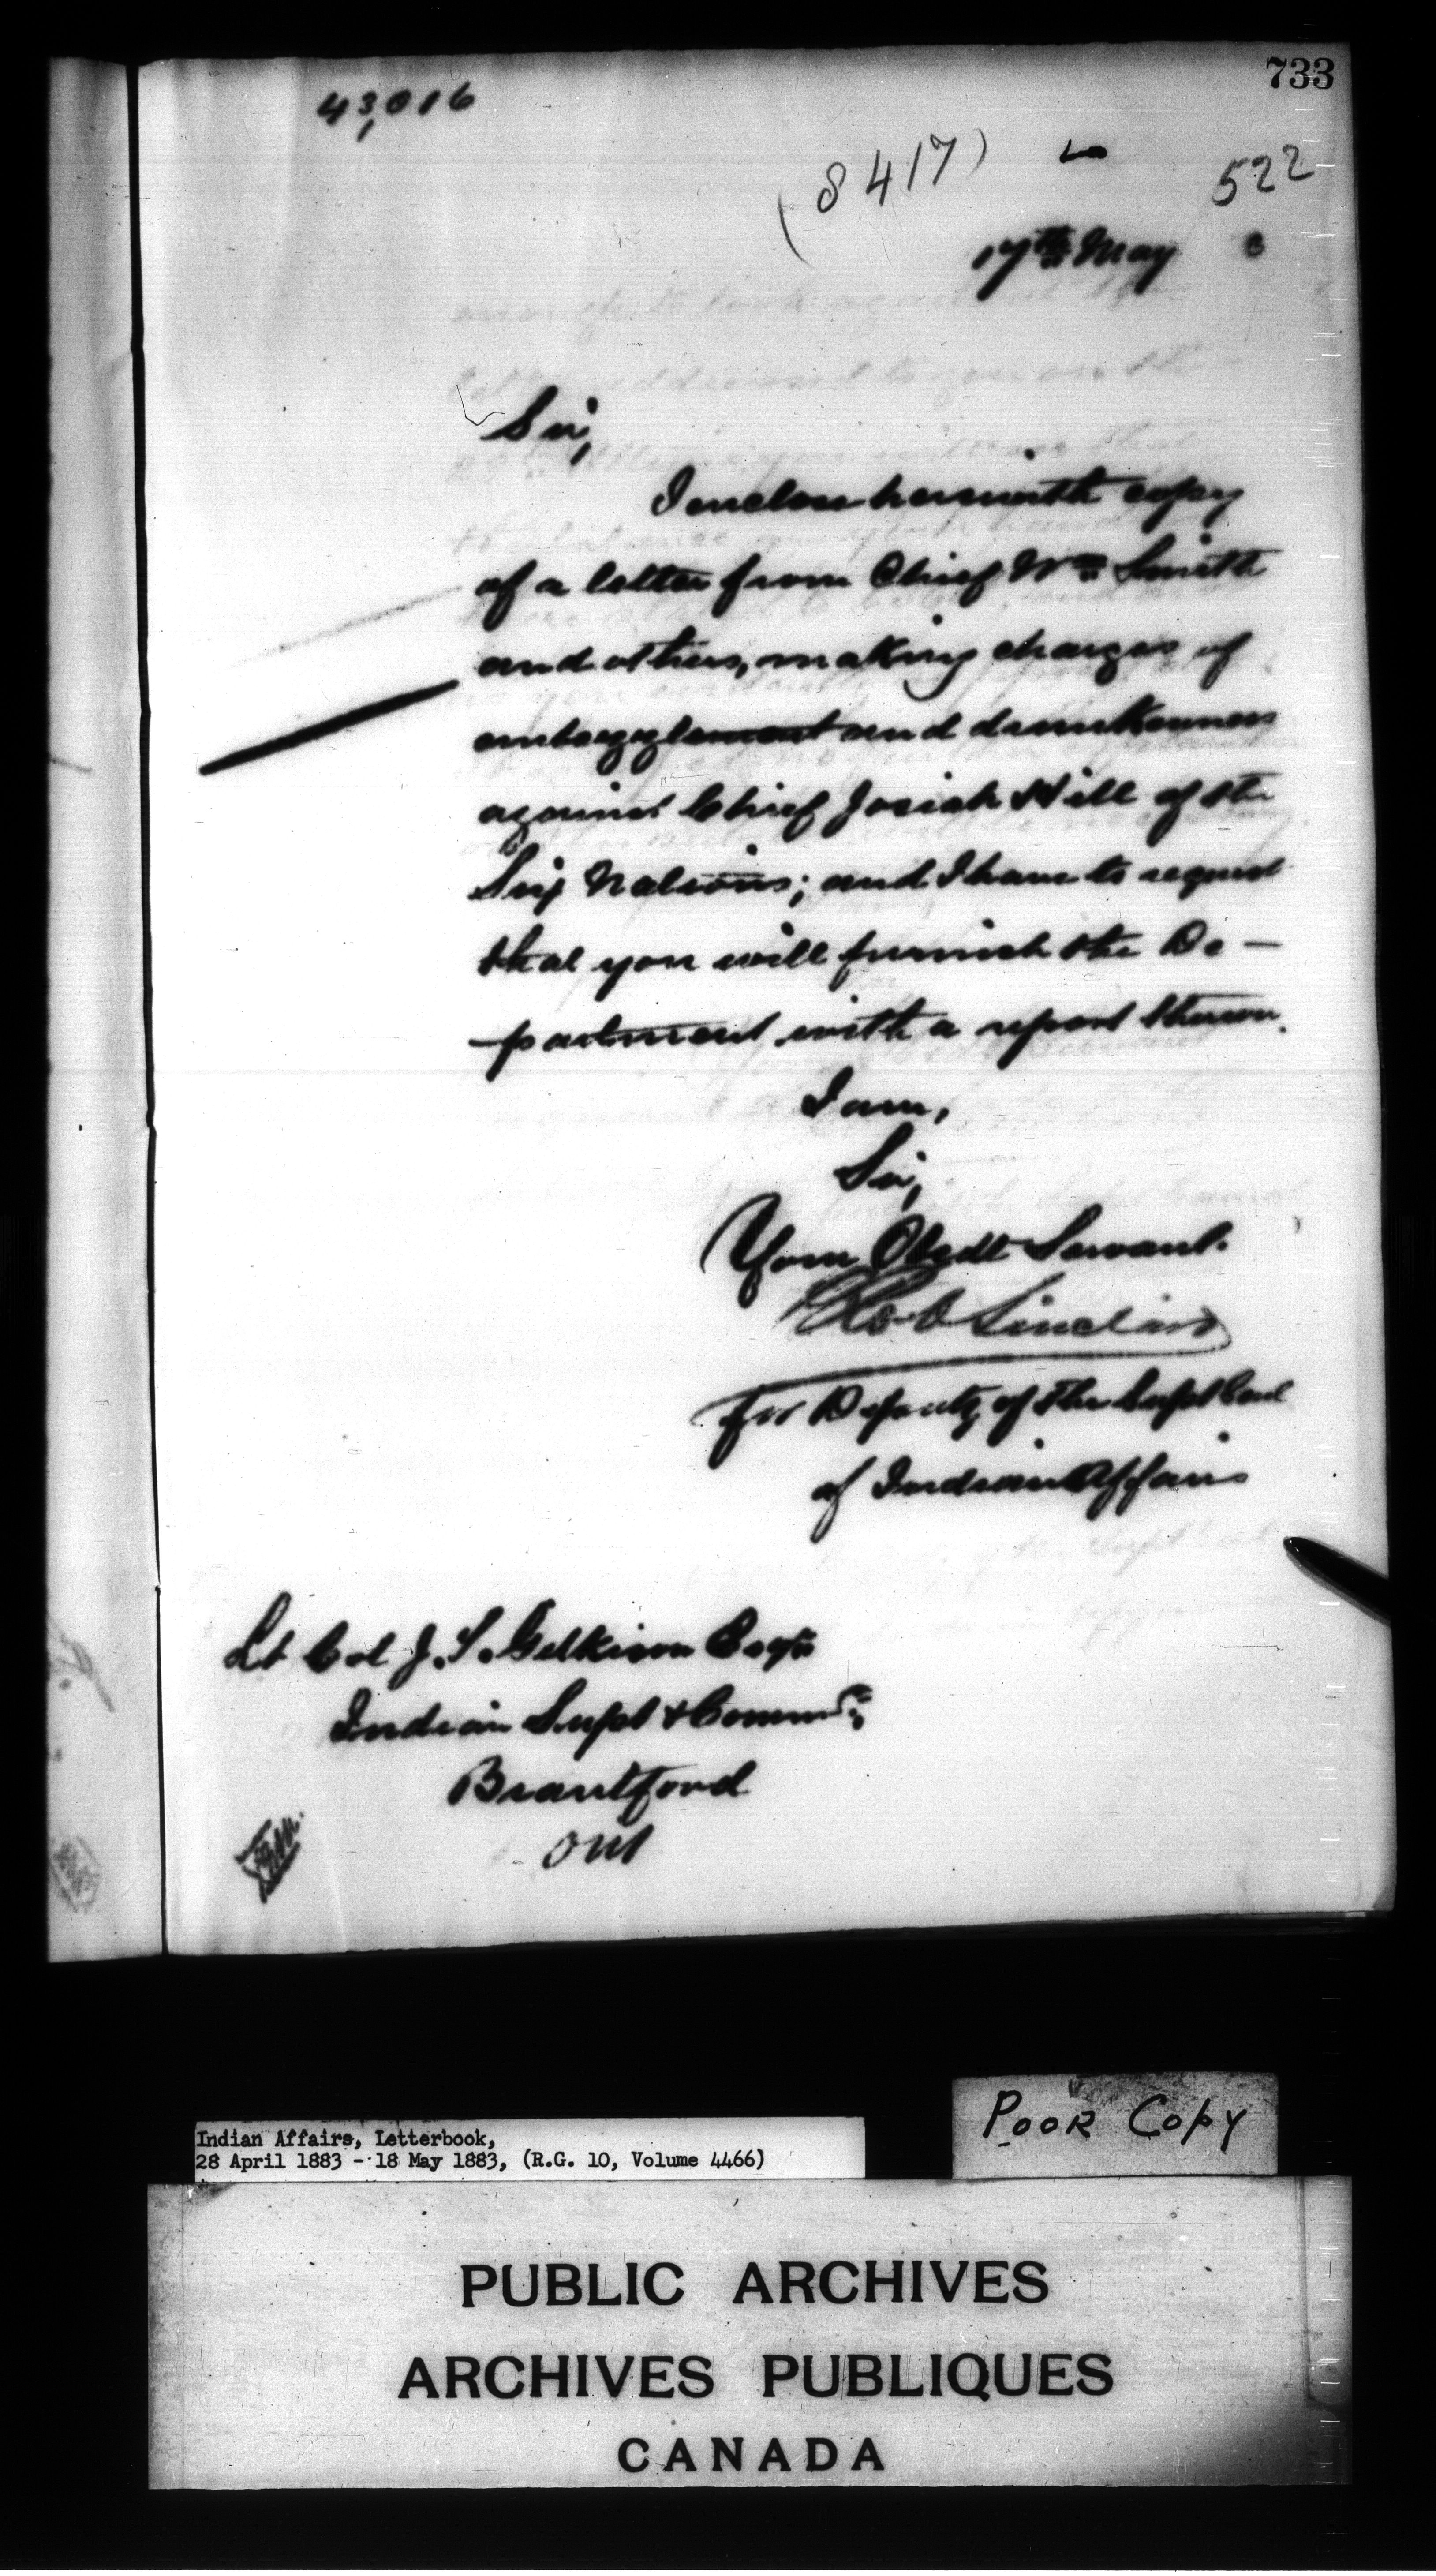 733
43,016
(8417)
522
17th May 3
Sir,
I enclose herewith copy
of a letter from Chief Wm Smith
and others, making charges of
embezzlement and drunkenness
against Chief Josiah Hill of the
Six Nations; and I have to request
that you will furnish the De-
-partment with a report thereon.
I am,
Sir,
Your Obedt Servant.
Rob Sinclair
For Deputy of the Supt Genl
of Indian Affairs
Lt Col J. T. Gilkison Esqre
Indian Supt & Commr
Brantford
Ont
Poor Copy
Indian Affairs, Letterbook,
28 April 1883 - 18 May 1883, (R.G. 10, Volume 4466)
PUBLIC ARCHIVES
ARCHIVES PUBLIQUES
CANADA